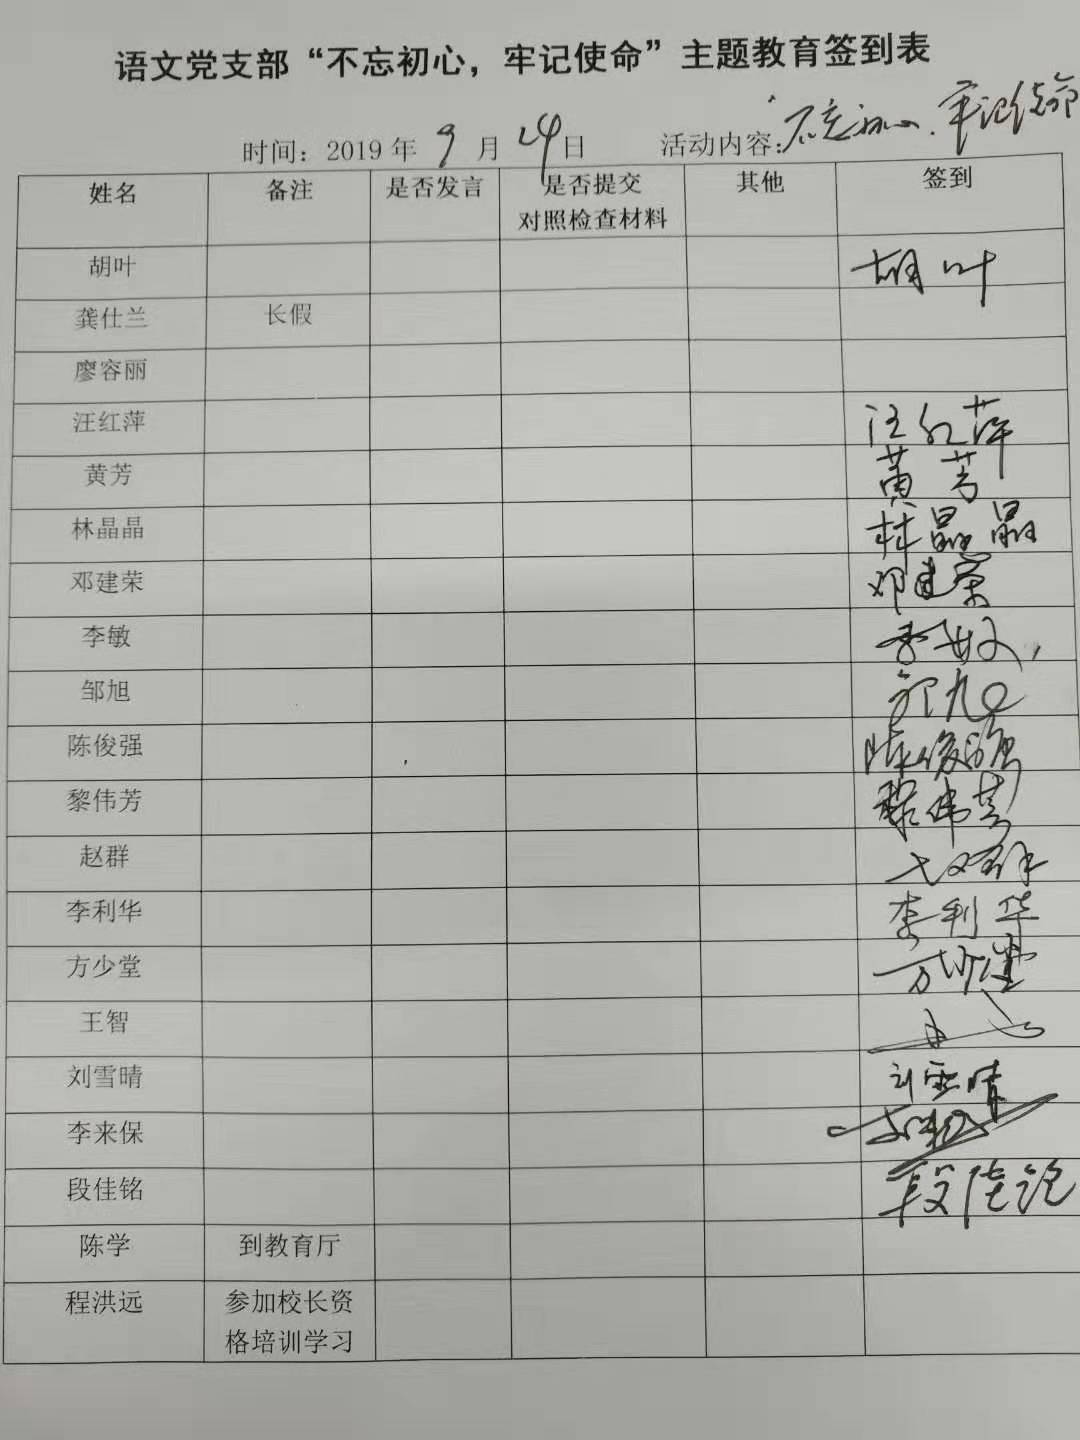 语文党支部“不忘初心，牢记使命”主题教育签到表
时间：2019年 9 月 24 日 活动内容：不忘初心、牢记使命
姓名 备注 是否发言 是否提交 其他 签到
对照检查材料
胡叶 胡叶
龚仕兰 长假
廖容丽
汪红萍 汪红萍
黄芳 黄芳
林晶晶 林晶晶
邓建荣 邓建荣
李敏 李敏
邹旭 邹旭
陈俊强 陈俊强
黎伟芳 黎伟芳
赵群 赵群
李利华 李利华
方少堂 方少堂
王智
刘雪晴 刘雪晴
李来保
段佳铭 段佳铭
陈学 到教育厅
程洪远 参加校长资
格培训学习